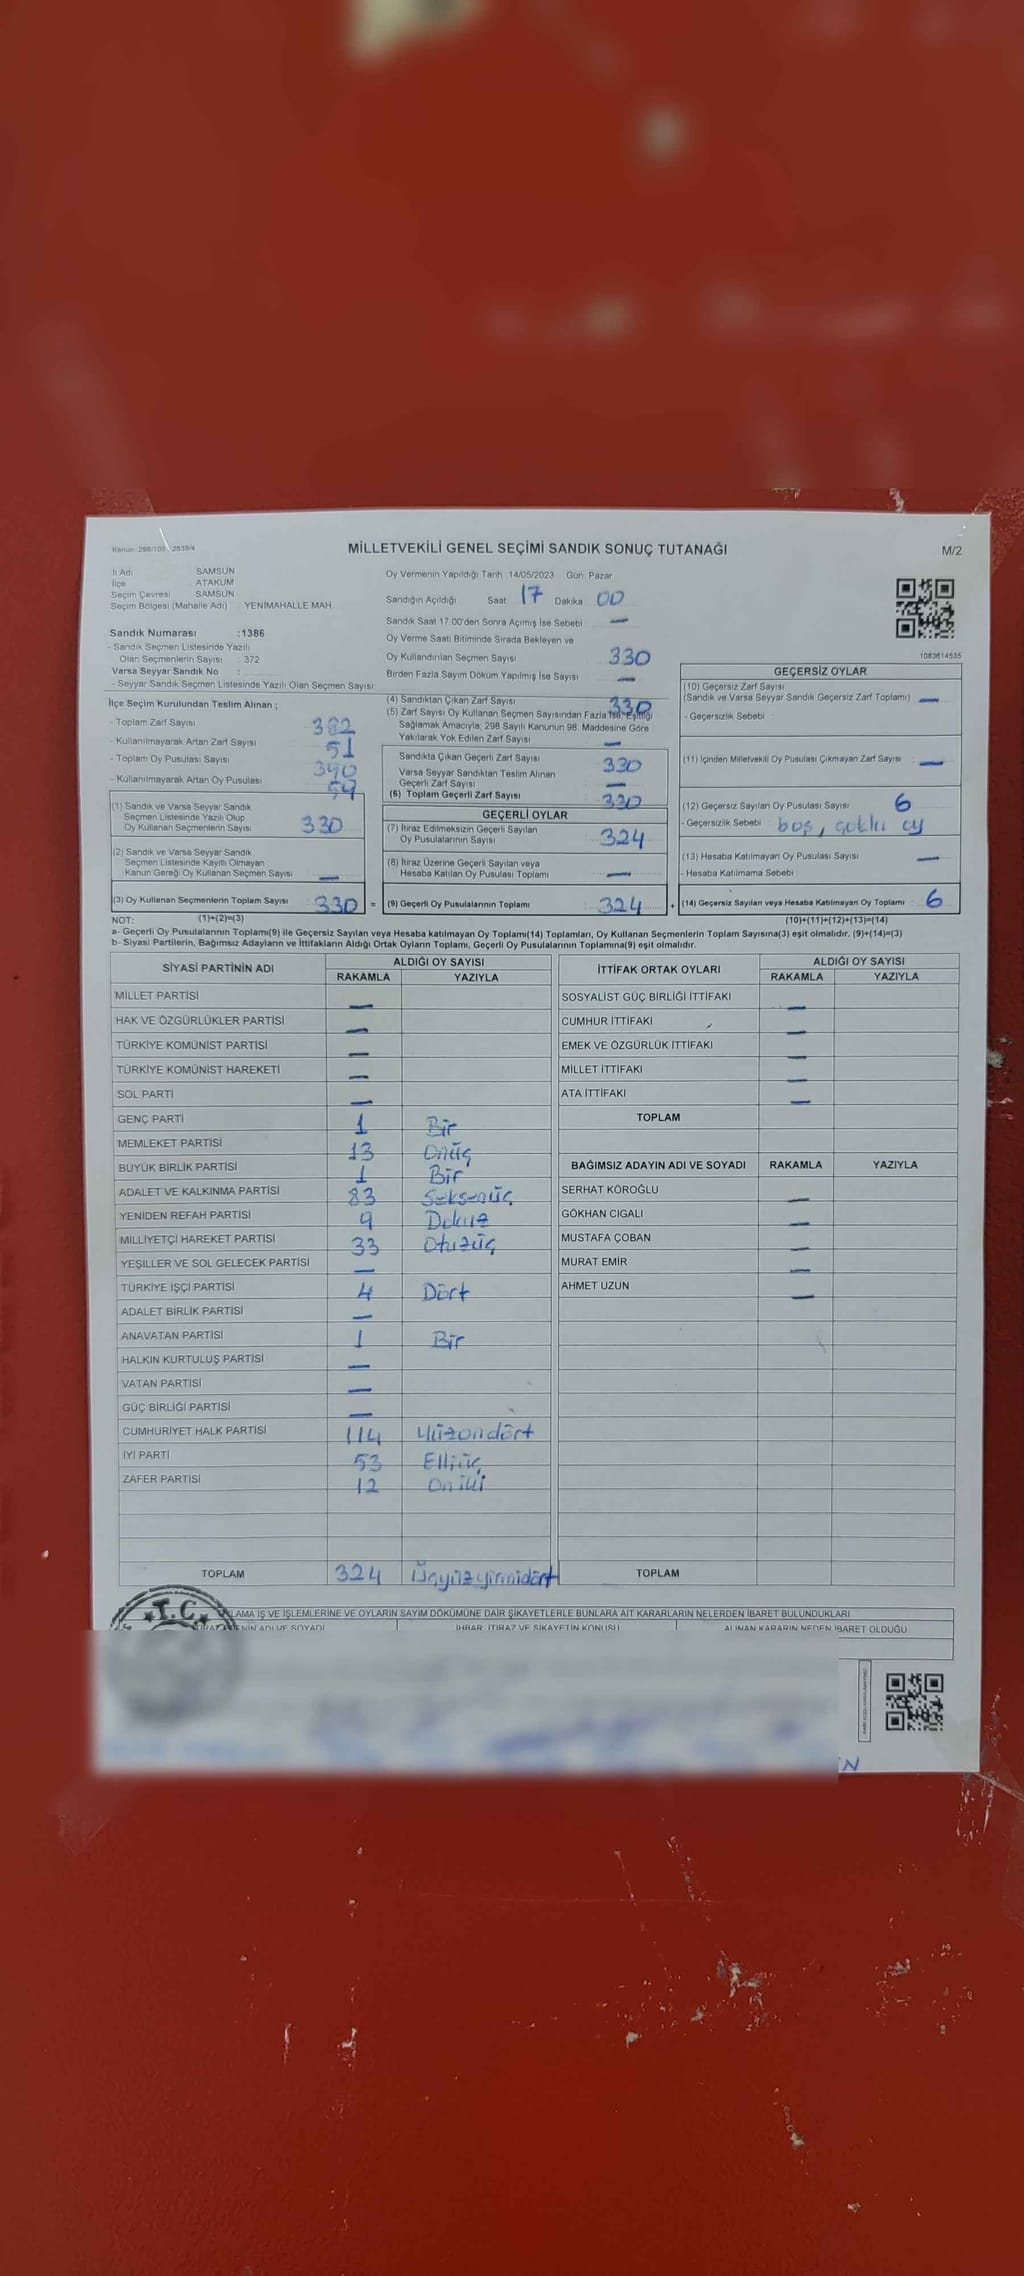 Kanun: 298/105 2839/4
MİLLETVEKİLİ GENEL SEÇİMİ SANDIK SONUÇ TUTANAĞI
M/2
İli Adı SAMSUN
İlçe ATAKUM
Seçim Çevresi SAMSUN
Seçim Bölgesi (Mahalle Adı) YENİMAHALLE MAH.
Sandık Numarası :1386
- Sandık Seçmen Listesinde Yazılı
Olan Seçmenlerin Sayısı : 372
Varsa Seyyar Sandık No :
- Seyyar Sandık Seçmen Listesinde Yazılı Olan Seçmen Sayısı
Oy Vermenin Yapıldığı Tarih 14/05/2023 Gün: Pazar
Sandığın Açıldığı Saat 17 Dakika 00
Sandık Saat 17.00'den Sonra Açımış İse Sebebi : —
Oy Verme Saati Bitiminde Sırada Bekleyen ve
Oy Kullandırılan Seçmen Sayısı 330
Birden Fazla Sayım Döküm Yapılmış İse Sayısı —
1083614535
İlçe Seçim Kurulundan Teslim Alınan ;
- Toplam Zarf Sayısı 382
- Kullanılmayarak Artan Zarf Sayısı 51
- Toplam Oy Pusulası Sayısı 390
- Kullanılmayarak Artan Oy Pusulası 59
(1) Sandık ve Varsa Seyyar Sandık
Seçmen Listesinde Yazılı Olup
Oy Kullanan Seçmenlerin Sayısı 330
(2) Sandık ve Varsa Seyyar Sandık
Seçmen Listesinde Kayıtlı Olmayan
Kanun Gereği Oy Kullanan Seçmen Sayısı —
(3) Oy Kullanan Seçmenlerin Toplam Sayısı 330 =
(1)+(2)=(3)
(4) Sandıktan Çıkan Zarf Sayısı 330
(5) Zarf Sayısı Oy Kullanan Seçmen Sayısından Fazla İse, Eşitliği
Sağlamak Amacıyla, 298 Sayılı Kanunun 98. Maddesine Göre
Yakılarak Yok Edilen Zarf Sayısı —
Sandıkta Çıkan Geçerli Zarf Sayısı 330
Varsa Seyyar Sandıktan Teslim Alınan
Geçerli Zarf Sayısı —
(6) Toplam Geçerli Zarf Sayısı 330
GEÇERLİ OYLAR
(7) İtiraz Edilmeksizin Geçerli Sayılan
Oy Pusulalarının Sayısı 324
(8) İtiraz Üzerine Geçerli Sayılan veya
Hesaba Katılan Oy Pusulası Toplamı —
(9) Geçerli Oy Pusulalarının Toplamı 324 +
GEÇERSİZ OYLAR
(10) Geçersiz Zarf Sayısı
(Sandık ve Varsa Seyyar Sandık Geçersiz Zarf Toplamı) —
- Geçersizlik Sebebi :
(11) İçinden Milletvekili Oy Pusulası Çıkmayan Zarf Sayısı —
(12) Geçersiz Sayılan Oy Pusulası Sayısı 6
- Geçersizlik Sebebi : boş, çoklu oy
(13) Hesaba Katılmayan Oy Pusulası Sayısı —
- Hesaba Katılmama Sebebi :
(14) Geçersiz Sayılan veya Hesaba Katılmayan Oy Toplamı 6
(10)+(11)+(12)+(13)=(14)
NOT:
a- Geçerli Oy Pusulalarının Toplamı(9) ile Geçersiz Sayılan veya Hesaba katılmayan Oy Toplamı(14) Toplamları, Oy Kullanan Seçmenlerin Toplam Sayısına(3) eşit olmalıdır. (9)+(14)=(3)
b- Siyasi Partilerin, Bağımsız Adayların ve İttifakların Aldığı Ortak Oyların Toplamı, Geçerli Oy Pusulalarının Toplamına(9) eşit olmalıdır.
SİYASİ PARTİNİN ADI ALDIĞI OY SAYISI
RAKAMLA YAZIYLA
MİLLET PARTİSİ —
HAK VE ÖZGÜRLÜKLER PARTİSİ —
TÜRKİYE KOMÜNİST PARTİSİ —
TÜRKİYE KOMÜNİST HAREKETİ —
SOL PARTİ —
GENÇ PARTİ 1 Bir
MEMLEKET PARTİSİ 13 Onüç
BÜYÜK BİRLİK PARTİSİ 1 Bir
ADALET VE KALKINMA PARTİSİ 83 Seksenüç
YENİDEN REFAH PARTİSİ 9 Dokuz
MİLLİYETÇİ HAREKET PARTİSİ 33 Otuzüç
YEŞİLLER VE SOL GELECEK PARTİSİ —
TÜRKİYE İŞÇİ PARTİSİ 4 Dört
ADALET BİRLİK PARTİSİ —
ANAVATAN PARTİSİ 1 Bir
HALKIN KURTULUŞ PARTİSİ —
VATAN PARTİSİ —
GÜÇ BİRLİĞİ PARTİSİ —
CUMHURİYET HALK PARTİSİ 114 Yüzondört
İYİ PARTİ 53 Elliüç
ZAFER PARTİSİ 12 Oniki
TOPLAM 324 Üçyüzyirmidört
İTTİFAK ORTAK OYLARI ALDIĞI OY SAYISI
RAKAMLA YAZIYLA
SOSYALİST GÜÇ BİRLİĞİ İTTİFAKI —
CUMHUR İTTİFAKI —
EMEK VE ÖZGÜRLÜK İTTİFAKI —
MİLLET İTTİFAKI —
ATA İTTİFAKI —
TOPLAM
BAĞIMSIZ ADAYIN ADI VE SOYADI RAKAMLA YAZIYLA
SERHAT KÖROĞLU —
GÖKHAN CIGALI —
MUSTAFA ÇOBAN —
MURAT EMİR —
AHMET UZUN —
TOPLAM
T.C.
İŞ VE İŞLEMLERİNE VE OYLARIN SAYIM DÖKÜMÜNE DAİR ŞİKAYETLERLE BUNLARA AİT KARARLARIN NELERDEN İBARET BULUNDUKLARI
ADI VE SOYADI İHBAR, İTİRAZ VE ŞİKAYETİN KONUSU ALINAN KARARIN NEDEN İBARET OLDUĞU